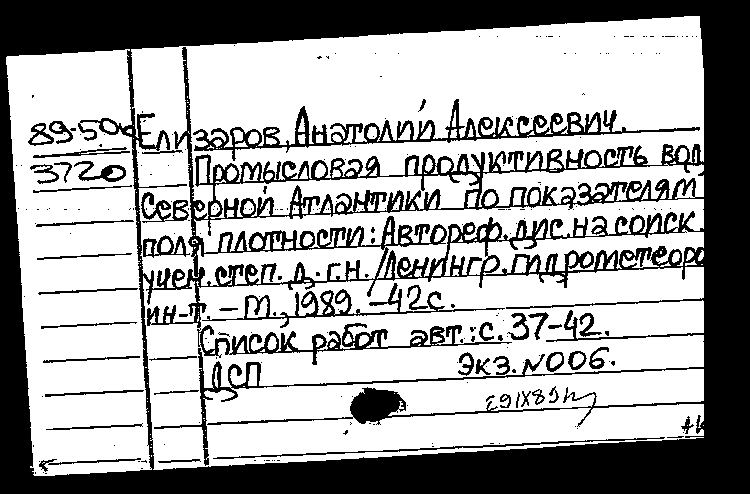 89-50к Елизаров, Анатолий Алексеевич.
3720 Промысловая продуктивность вод
Северной Атлантики по показателям
поля плотности: Автореф. дис. на соиск.
учен. степ. д. г. н. /Ленингр. гидрометеоро
ин-т. – М., 1989. – 42 с.
Список работ авт.: с. 37-42.
ДСП Экз. N 006.